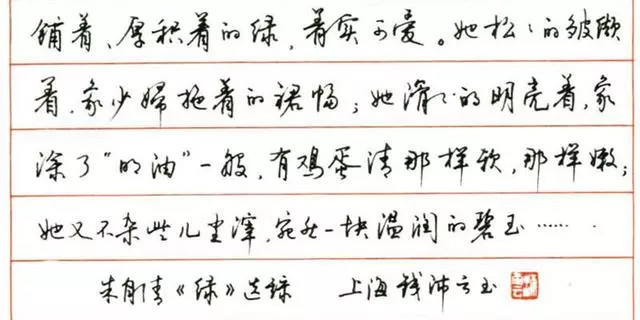 铺着、厚积着的绿，着实可爱。她松松的皱缬
着，象少妇拖着的裙幅；她滑滑的明亮着，象
涂了“明油”一般，有鸡蛋清那样软，那样嫩；
她又不杂些儿尘滓，宛然一块温润的碧玉……
朱自清《绿》选录 上海钱沛云书